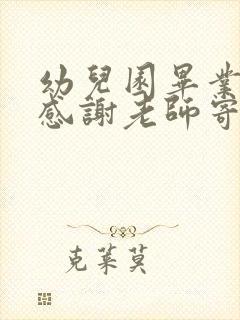 幼兒園畢業
感謝老師寄
克萊莫